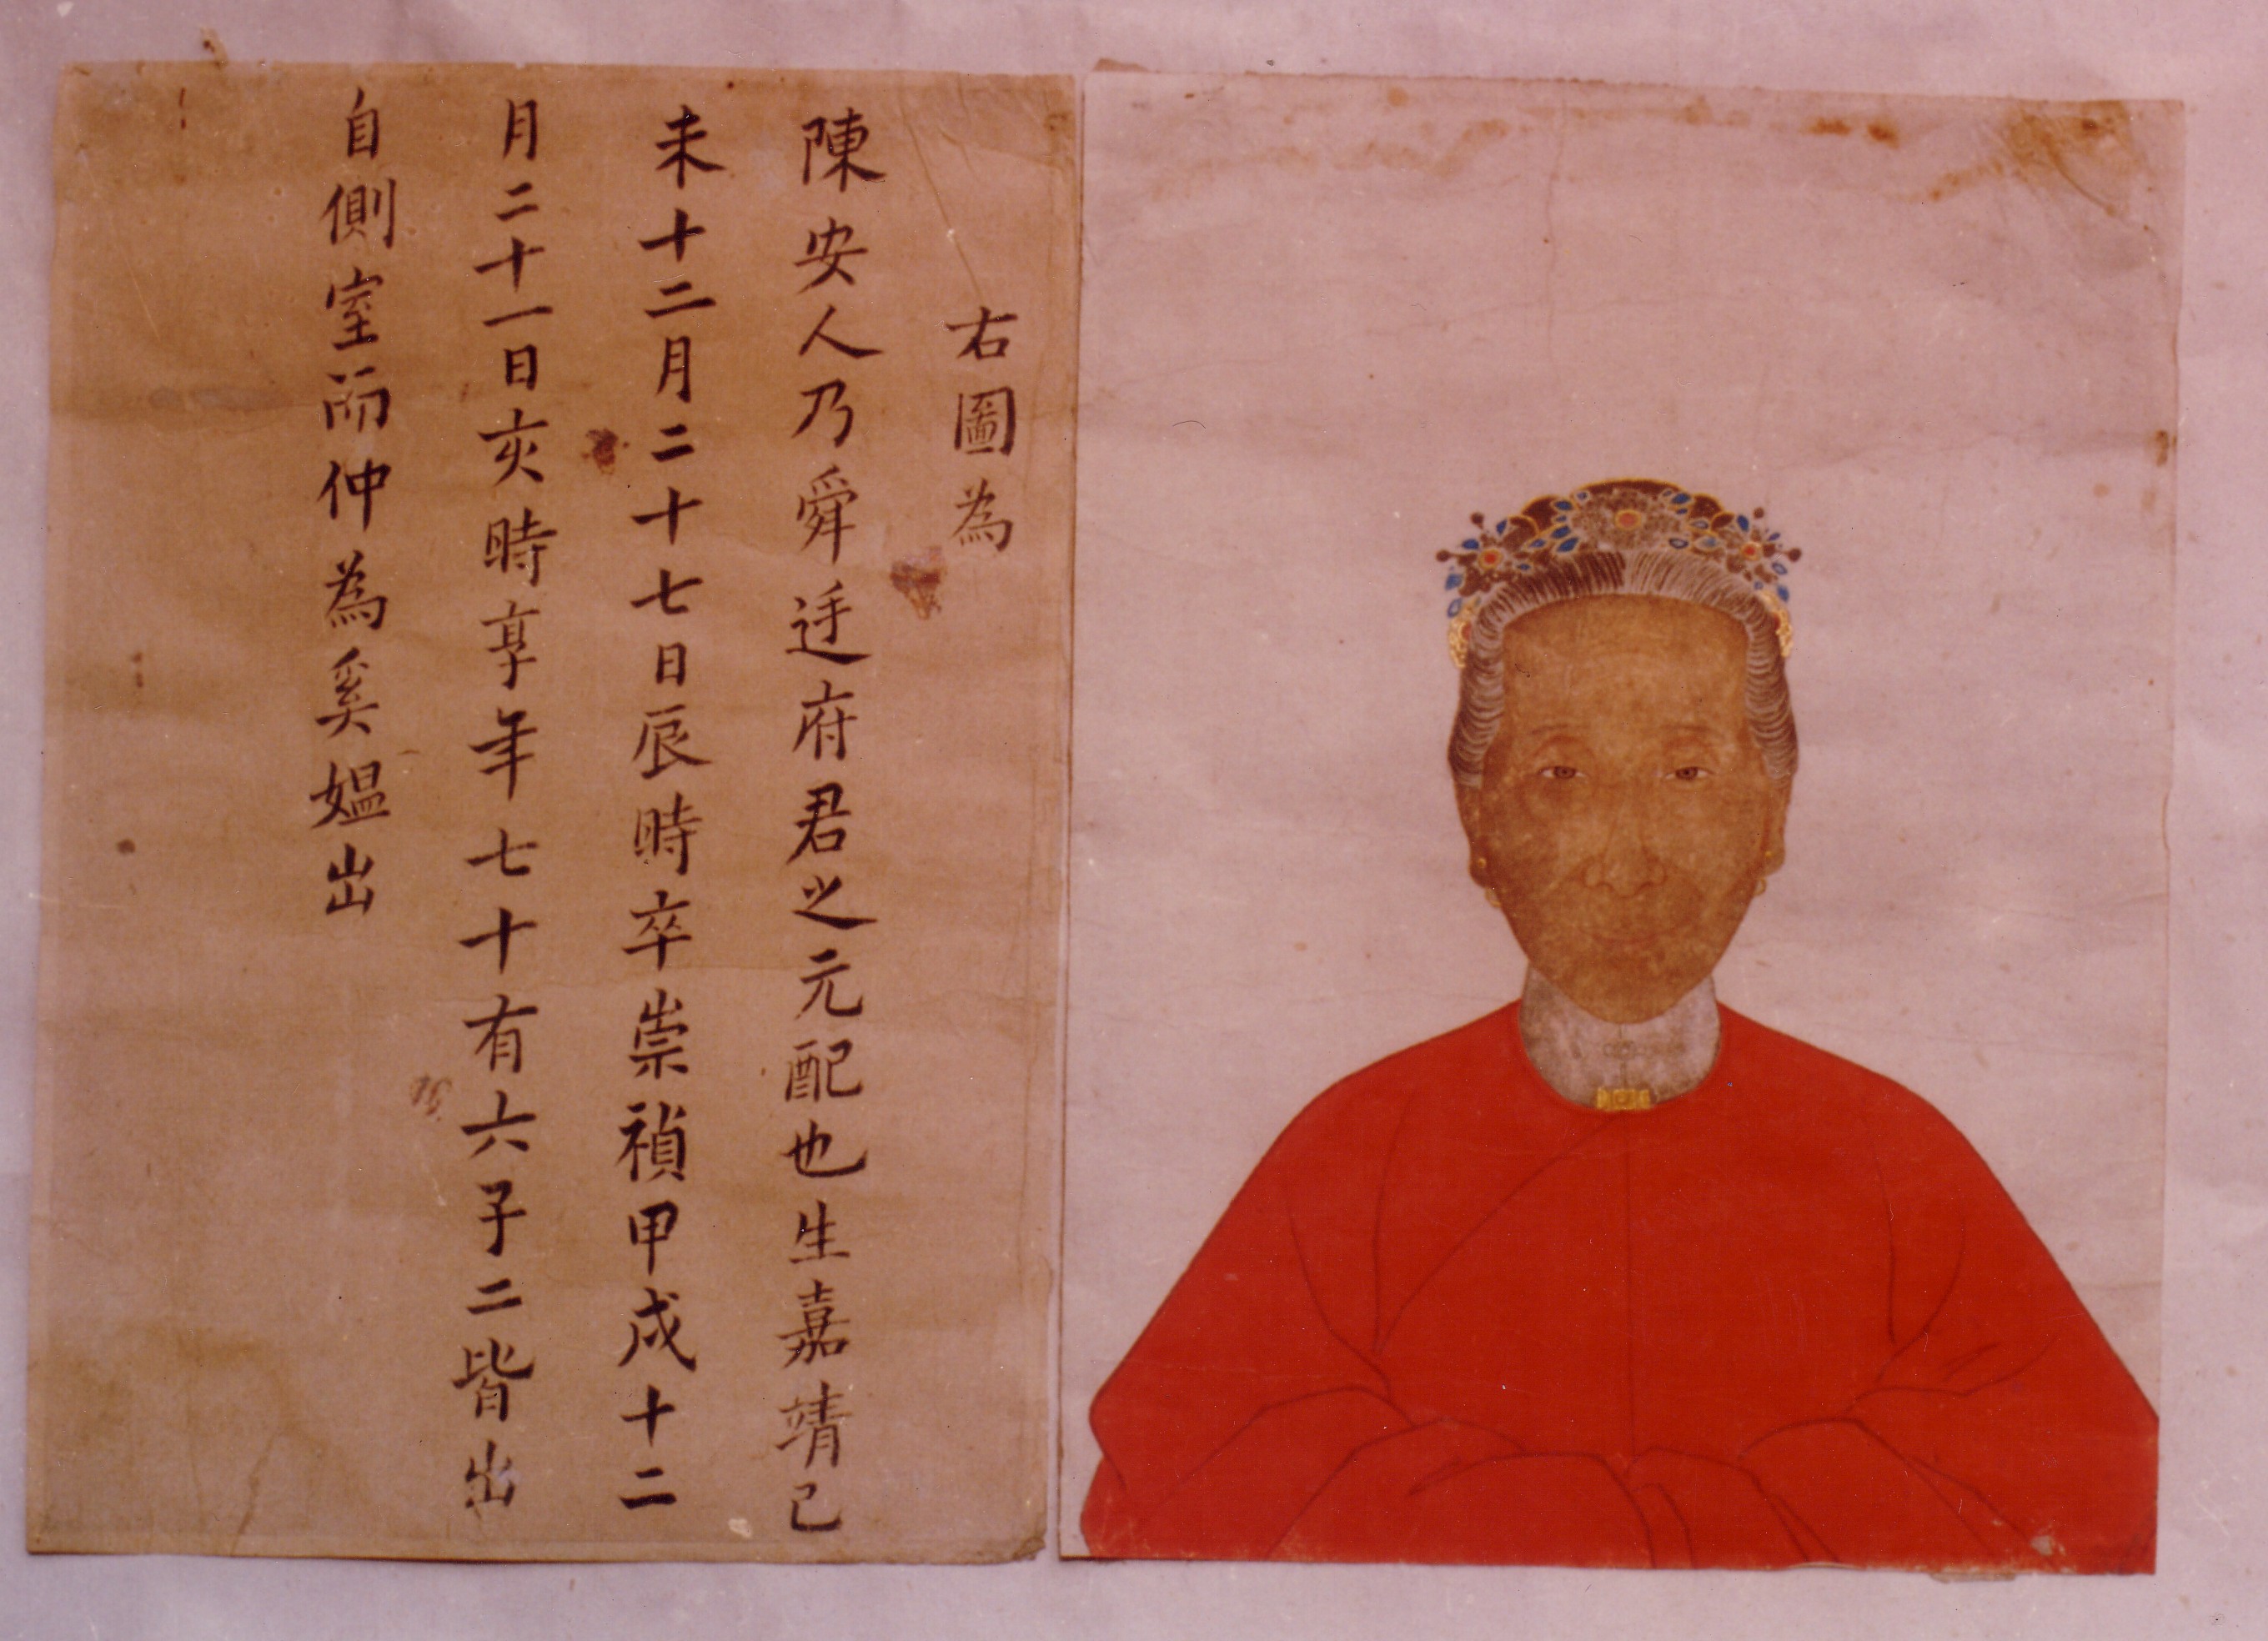 右圖為
陳安人乃舜迋府君之元配也生嘉靖己
未十二月二十七日辰時卒崇禎甲戌十二
月二十一日亥時享年七十有六子二皆出
自側室而仲為奚媼出